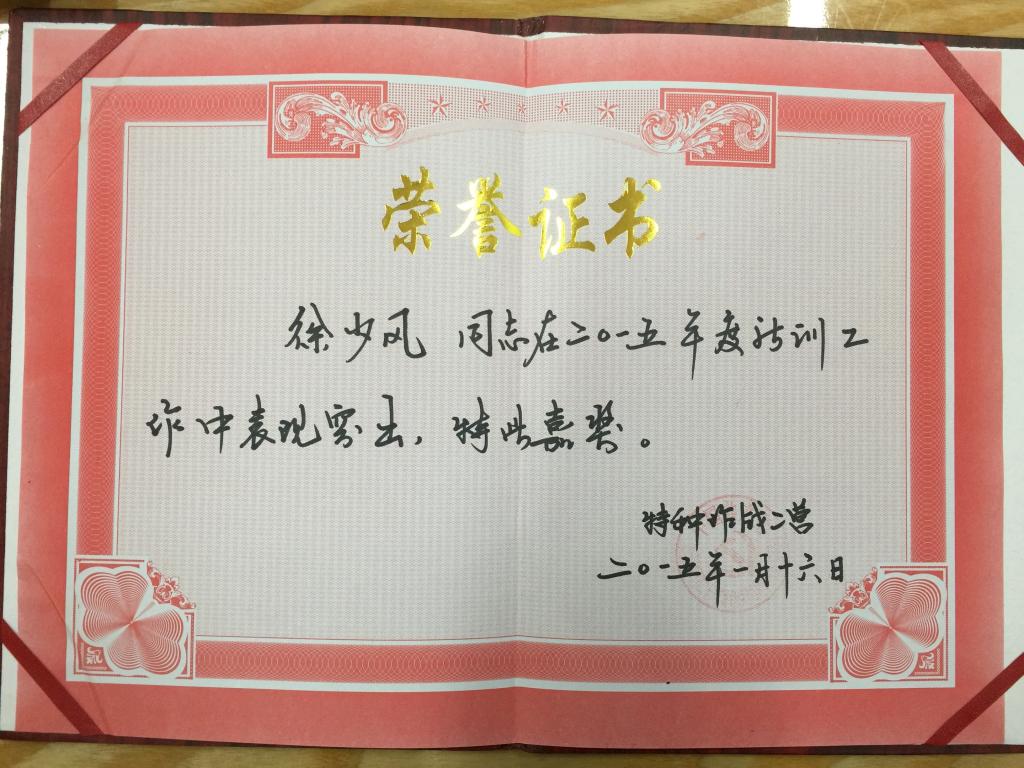 荣誉证书
徐少风 同志在二〇一五年度新训工
作中表现突出,特此嘉奖。
特种作战二营
二〇一五年一月十六日